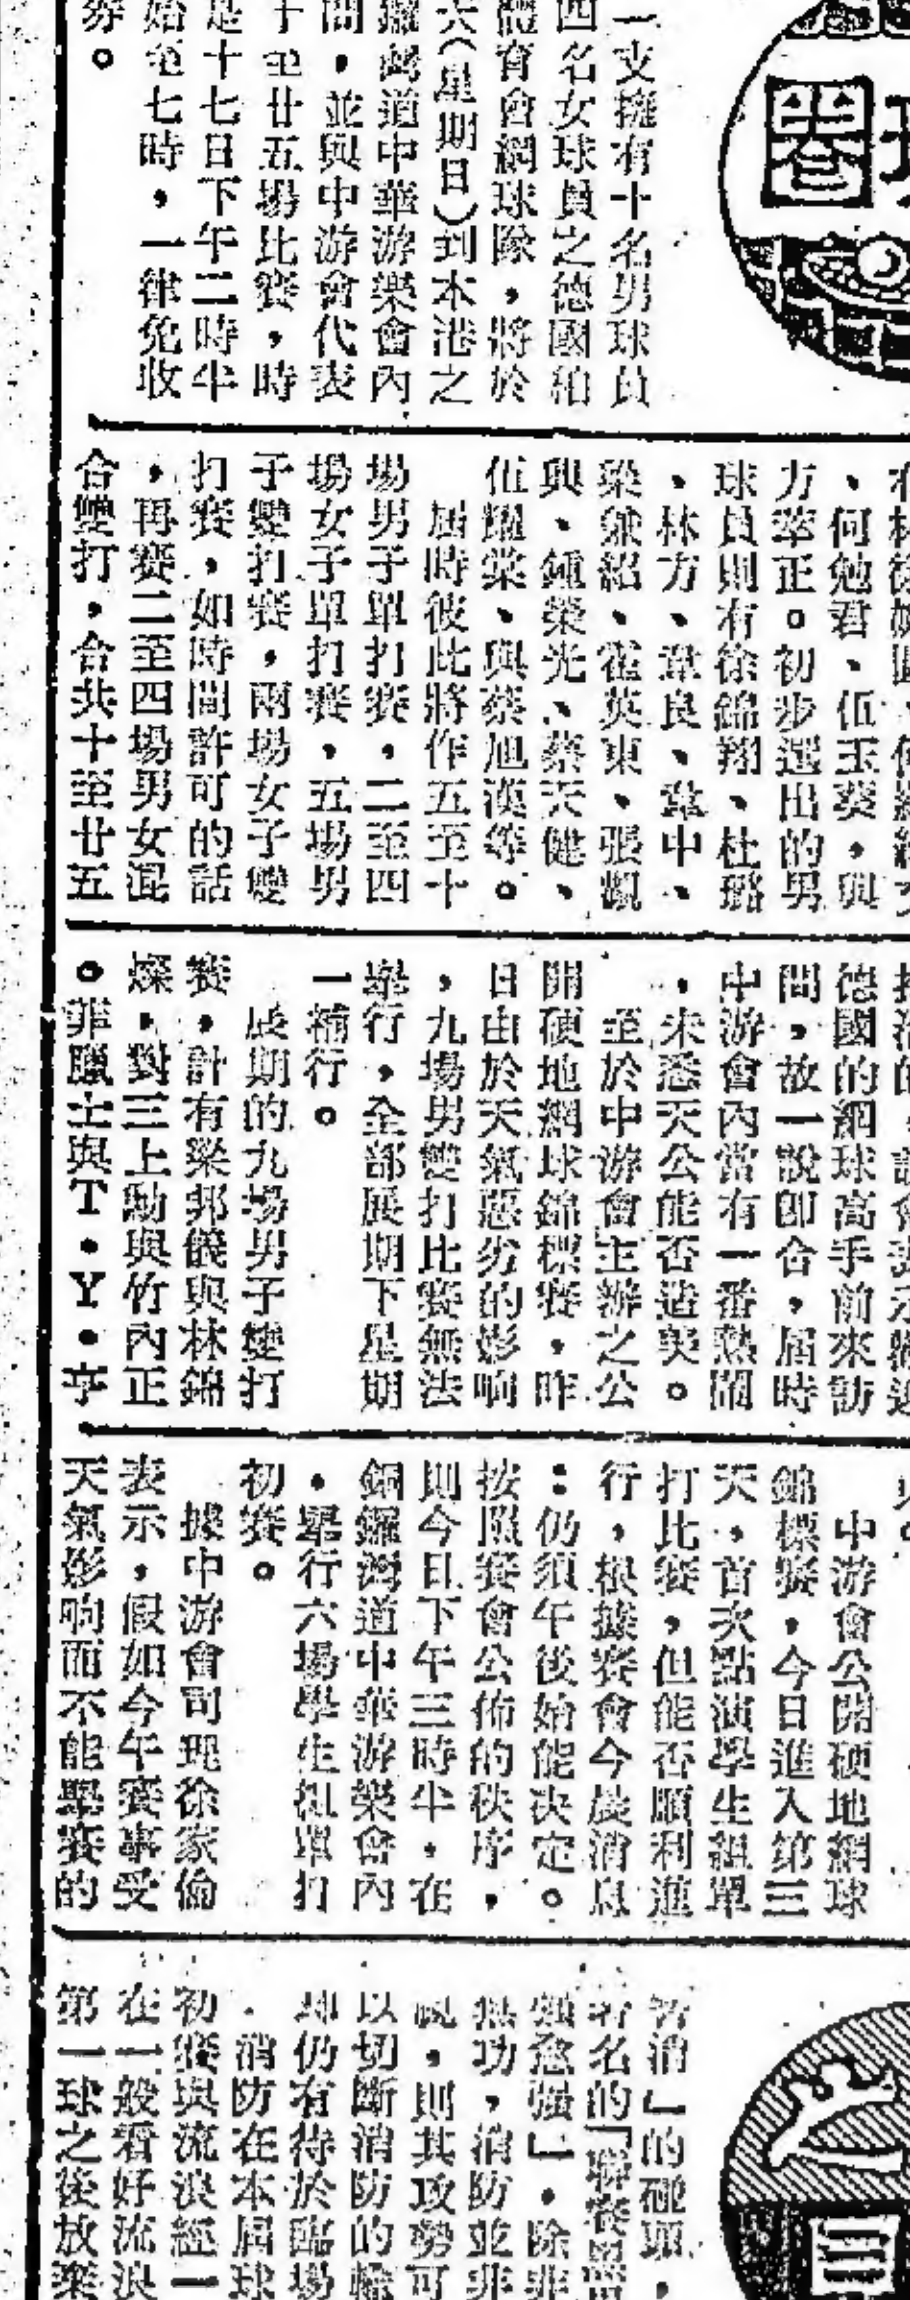 圈
一支擁有十名男球員
四名女球員之德國柏
體育會網球隊，將於
六（星期日）到本港之
鑼灣道中華游樂會內
問，並與中游會代表
十至廿五場比賽，時
是十七日下午二時半
始至七時，一律免收
券。
、何勉君、伍玉葵，與
方萃正。初步選出的男
球員則有徐錦翔、杜璐
、林方、韋良、韋中、
梁兆紹、霍英東、張頫
興、鍾榮光、蔡天健、
伍耀棠、與蔡旭漢等。
屆時彼此將作五至十
場男子單打賽，二至四
場女子單打賽，五場男
子雙打賽，兩場女子雙
打賽，如時間許可的話
，再賽二至四場男女混
合雙打，合共十至廿五
德國的網球高手前來訪
問，故一說即合，屆時
中游會內當有一番熱鬧
，未悉天公能否造美。
至於中游會主辦之公
開硬地網球錦標賽，昨
日由於天氣惡劣的影响
，九場男雙打比賽無法
舉行，全部展期下星期
一補行。
展期的九場男子雙打
賽，計有梁邦儀與林錦
燦，對三上勳與竹內正
。菲臘士與T・Y・李
中游會公開硬地網球
錦標賽，今日進入第三
天，首次點演學生組單
打比賽，但能否順利進
行，根據賽會今晨消息
：仍須午後始能决定。
按照賽會公佈的秩序，
則今日下午三時半，在
銅鑼灣道中華游樂會內
，舉行六場學生組單打
初賽。
據中游會司理徐家倫
表示，假如今午賽事受
天氣影响而不能舉賽的
消」的碰頭，
著名的「聯賽
強愈強」，除非
無功，消防並非
，則其攻勢可
以切斷消防的輸
却仍有待於臨場
消防在本屆球
初賽與流浪經一
在一般看好流浪
第一球之後放棄